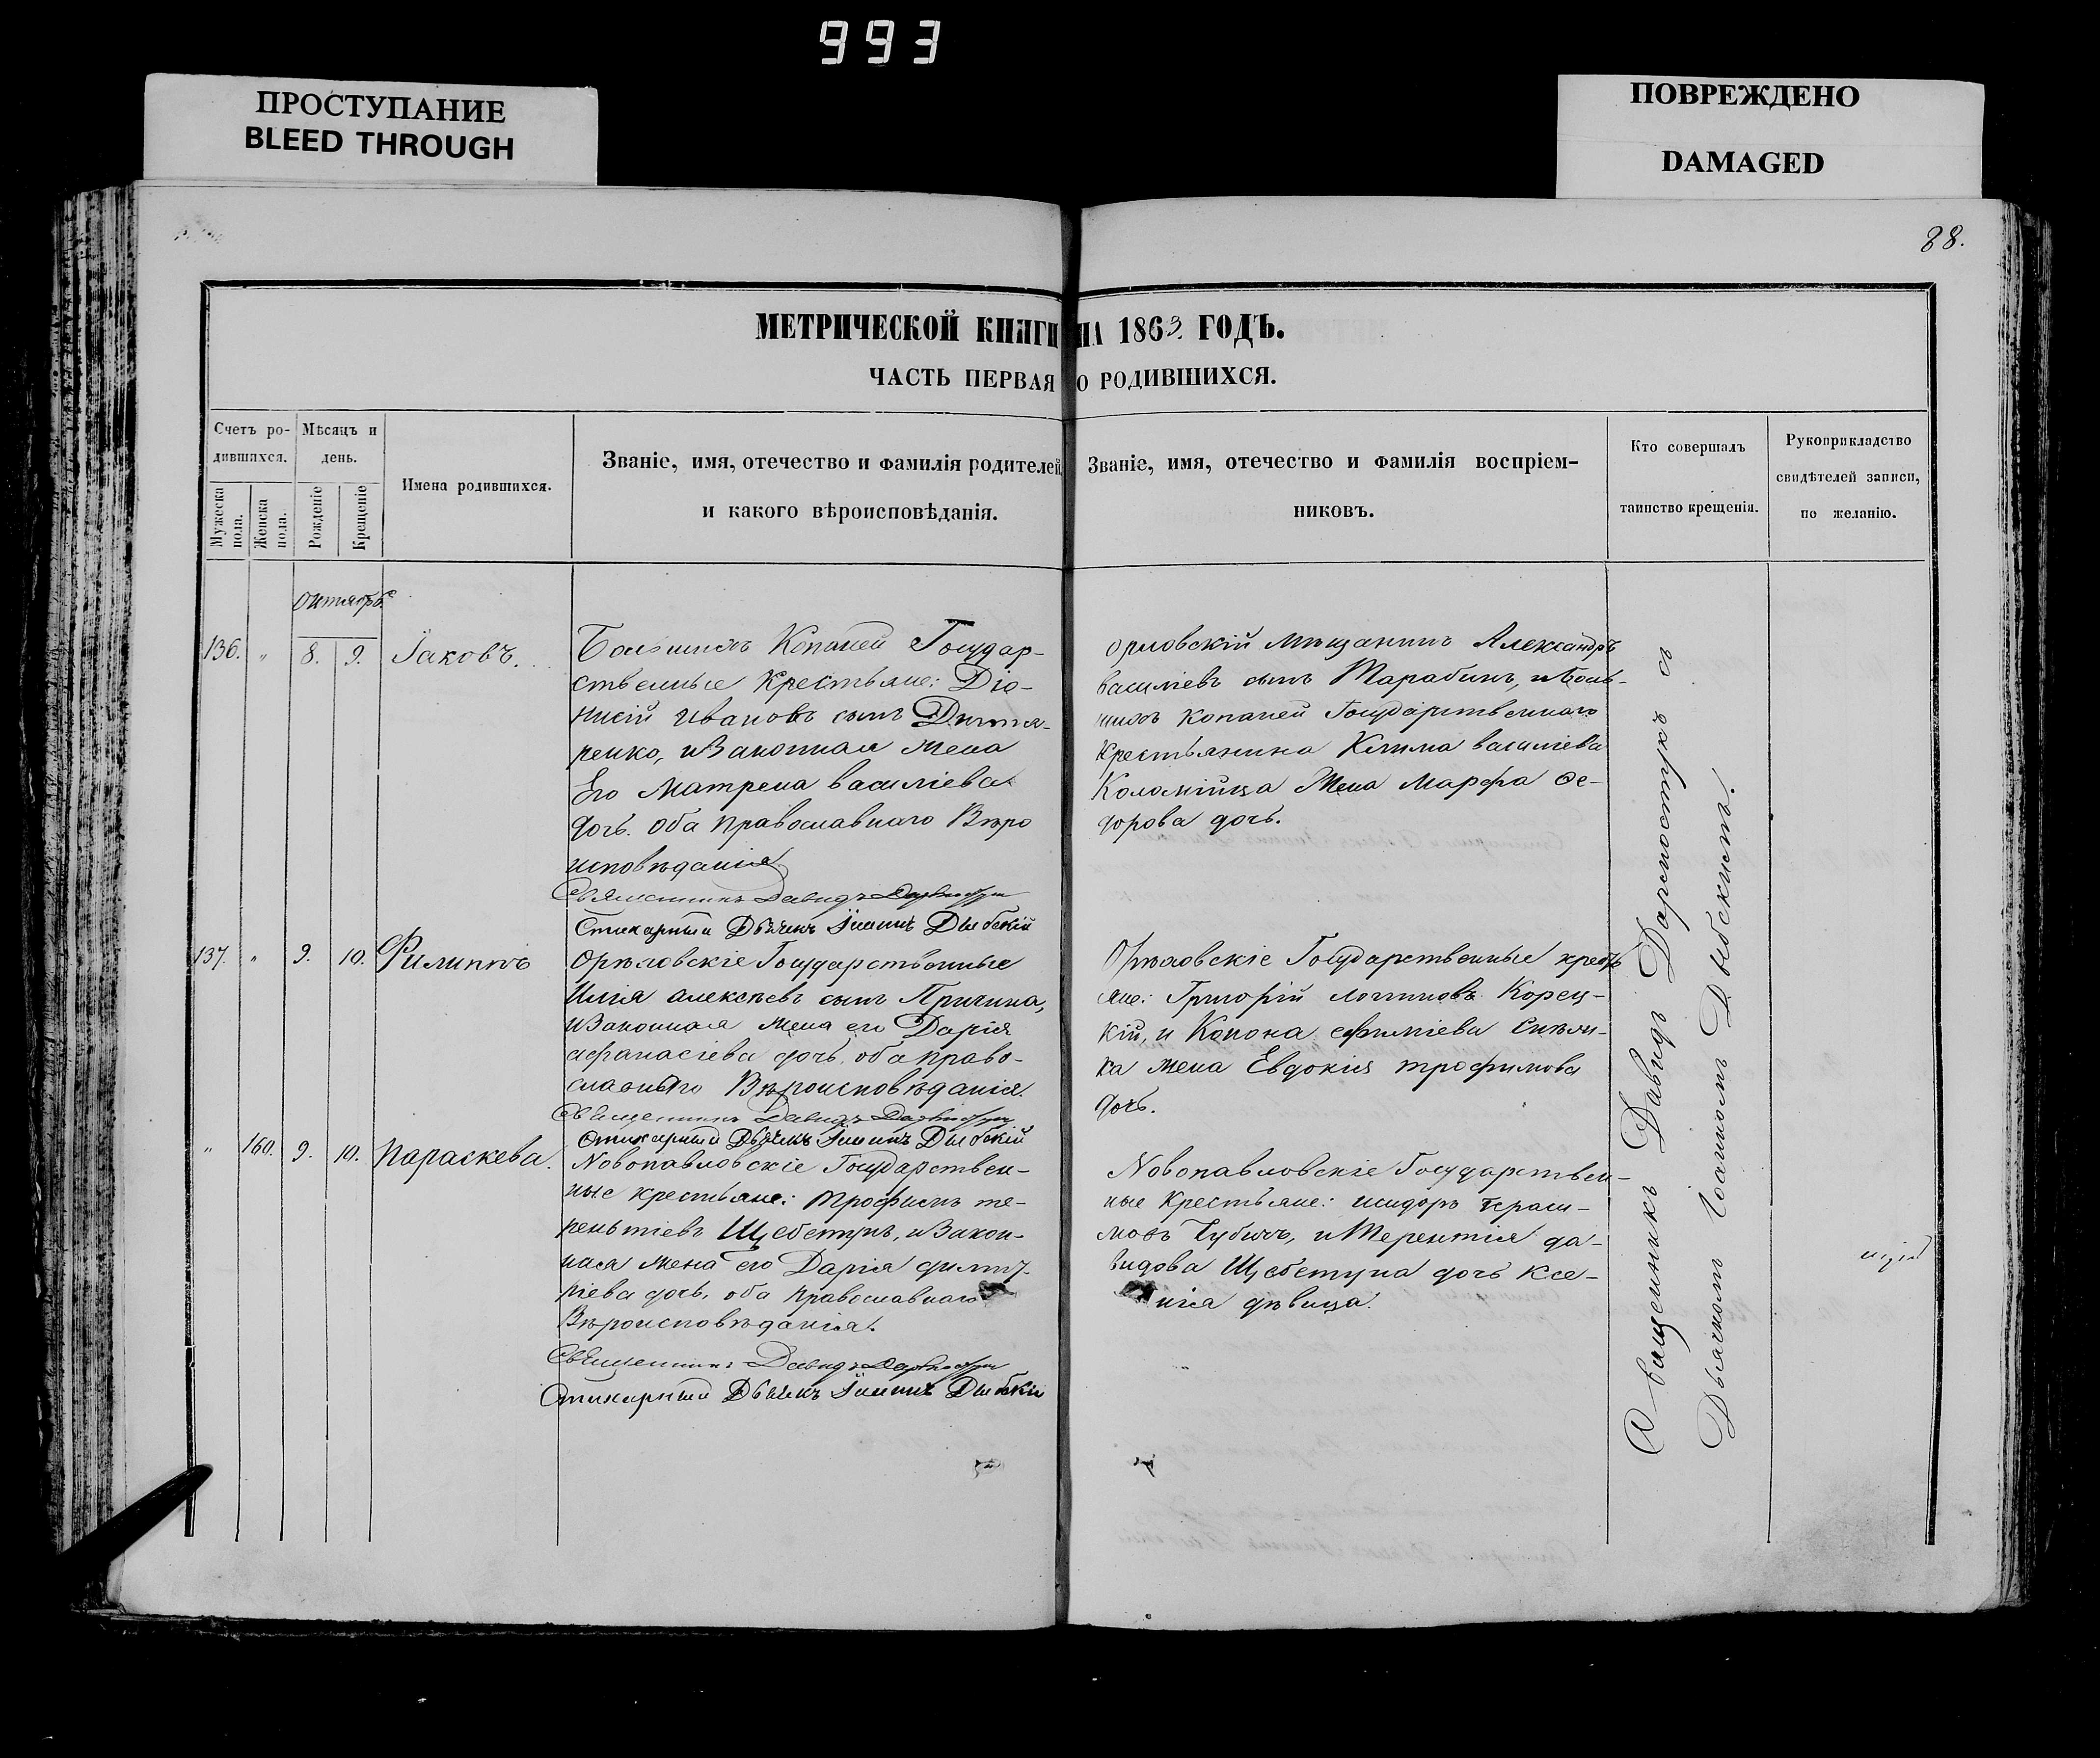 993
ПРОСТУПАНИЕ
BLEED THROUGH
ПОВРЕЖДЕНО
DAMAGED
88.
МЕТРИЧЕСКОЙ КНИГИ НА 1863 ГОДЪ.
ЧАСТЬ ПЕРВАЯ О РОДИВШИХСЯ.
Счетъ ро-
дившихся.
Мужеска пола.
Женска пола.
Мѣсяцъ и
день.
Рожденіе
Крещеніе
Имена родившихся.
Званіе, имя, отечество и фамилія родителей,
и какого вѣроисповѣданія.
Званіе, имя, отечество и фамилія воспріем-
никовъ.
Кто совершалъ
таинство крещенія.
Рукоприкладство
свидѣтелей записи,
по желанію.
Октябрь
136. " 8. 9. Іаковъ.
Большихъ Копаней Государ-
ственные Крестьяне: Діо-
нисій Ивановъ сынъ
ренко, и Законная Жена
Его Матрена василіева
Дочь. Оба Православнаго Вѣро
исповѣданія
Священникъ Давидъ
Стихарный Дьячекъ Іоаннъ Дыбскій
орловскій мѣщанинъ Александръ
василіевъ сынъ Тарабинъ, и Боль-
шихъ Копаней Государственнаго
Крестьянина Клима василіева
Коломійца Жена Марфа Ѳе-
дорова дочь.
137. " 9. 10. Филиппъ
Орѣховскіе Государственные
Илія алексѣевъ сынъ Причина,
и Законная жена его Дарія
афанасіева дочь, оба право-
славнаго Вѣроисповѣданія.
Священникъ Давидъ
Стихарный Дьячекъ Іоаннъ Дыбскій
Орѣховскіе Государственные крестья
яне: Григорій логиновъ Корец-
кій, и Конона ефиміева
ка жена Евдокія трофимова
дочь.
" 160. 9. 10. Параскева.
Новопавловскіе Государствен-
ные крестьяне: Трофимъ те-
рентіевъ Щебетунъ, и Закон-
ная жена его Дарія филип-
піева дочь, оба православнаго
Вѣроисповѣданія.
Священникъ Давидъ
Стихарный Дьячекъ Іоаннъ Дыбскій
Новопавловскіе Государствен-
ные Крестьяне: исидоръ гераси-
мовъ Чубичъ, и Терентія да-
видова Щебетуна дочь Ксе-
нія дѣвица.
Священникъ Давидъ Дармостукъ съ
Дьячкомъ Іоанномъ Дыбскимъ.